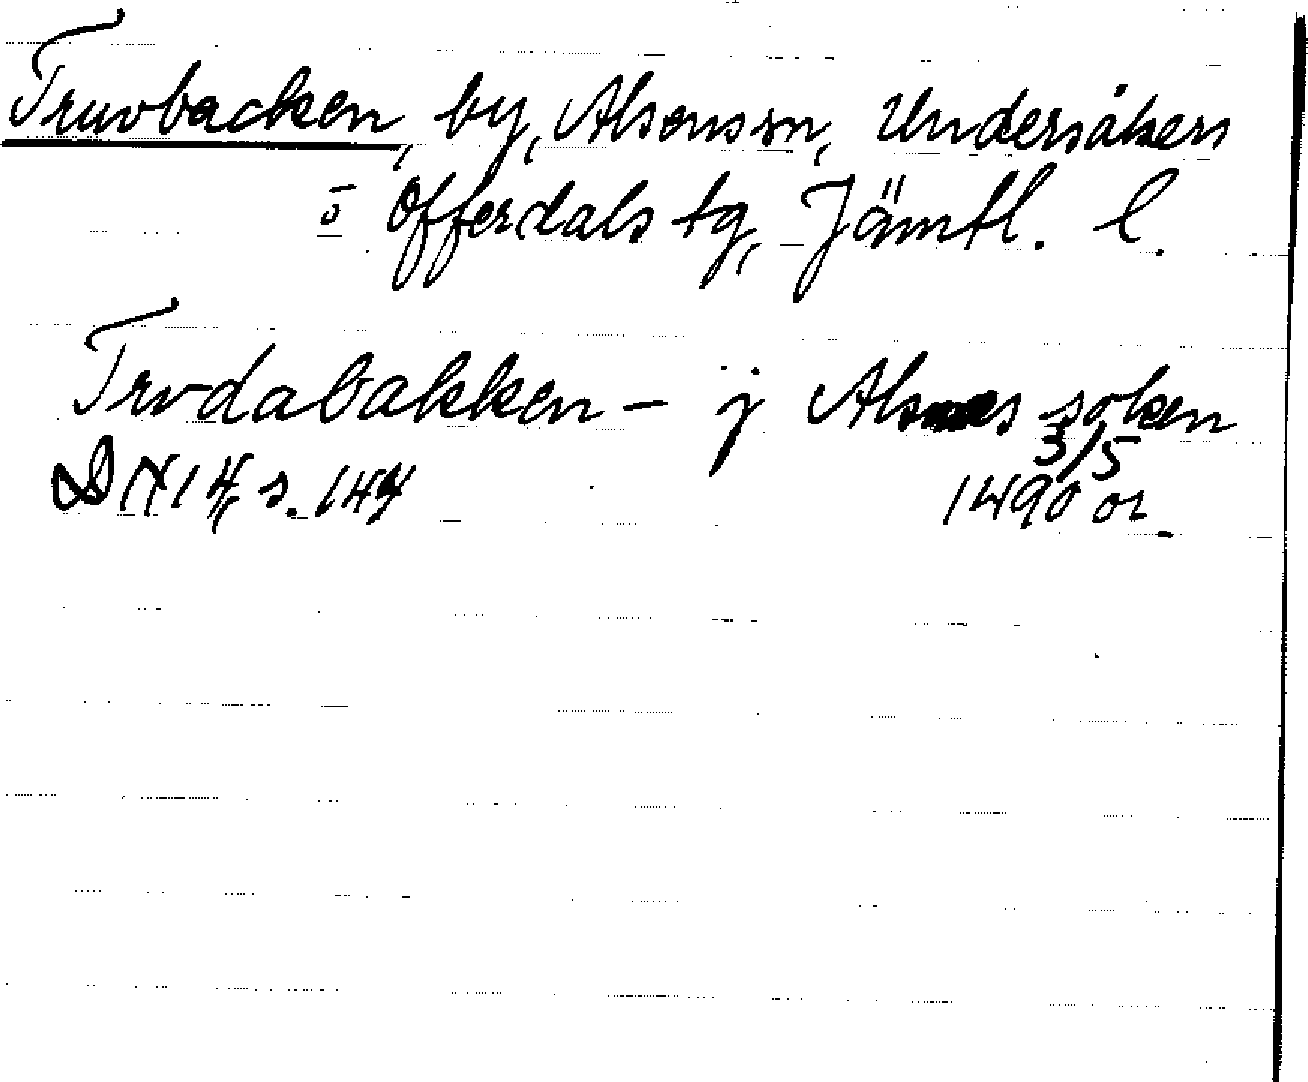 Truvbacken, by, Alsens sn, Undersåkers
o Offerdals tg, Jämtl. l.
Trvdabakken – j Alsnes soken
3/5
s. 147 1490 or.